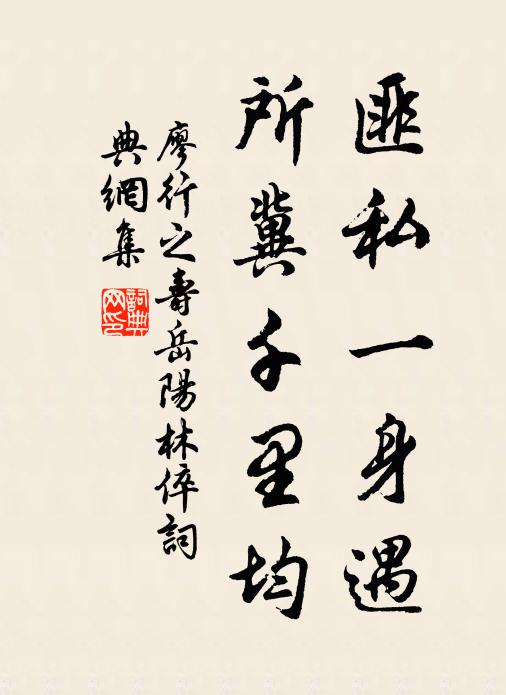 匪私一身遇
所冀千里均
廖行之壽岳陽林倅詞
典網集
詞典網印